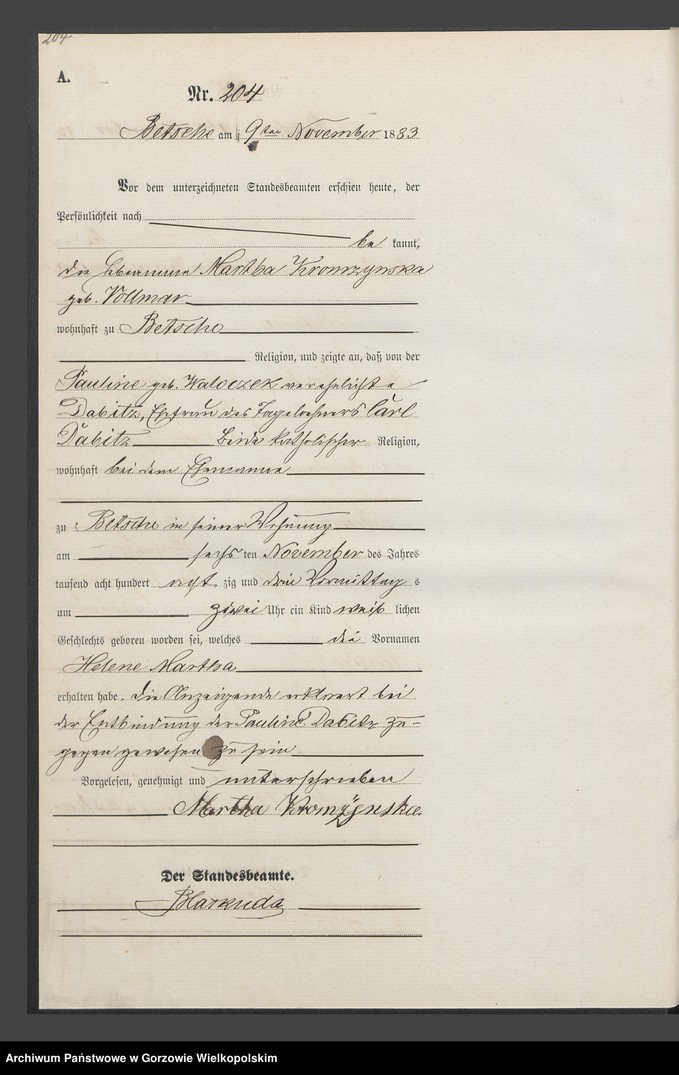 204
A.
Nr. 204
Betsche am 9ten November 1883
Vor dem unterzeichneten Standesbeamten erschien heute, der
Persönlichkeit nach
be kannt,
die Hebeamme Martha Kromzynska
geb. Vollmar
wohnhaft zu Betsche
Religion, und zeigte an, daß von der
Pauline geb. verehelichte
Dabitz, Ehefrau des Tagelöhners Carl
Dabitz beide katholischer Religion,
wohnhaft bei dem Ehemanne
zu Betsche in seiner Wohnung
am sechs ten November des Jahres
tausend acht hundert acht zig und drei Vormittag s
um zwei Uhr ein Kind weib lichen
Geschlechts geboren worden sei, welches die Vornamen
Helene Martha
erhalten habe. Die Anzeigende erklaert bei
der Entbindung der Pauline Dabitz zu=
gegen gewesen zu sein
Vorgelesen, genehmigt und unterschrieben
Martha Kromzynska.
Der Standesbeamte.